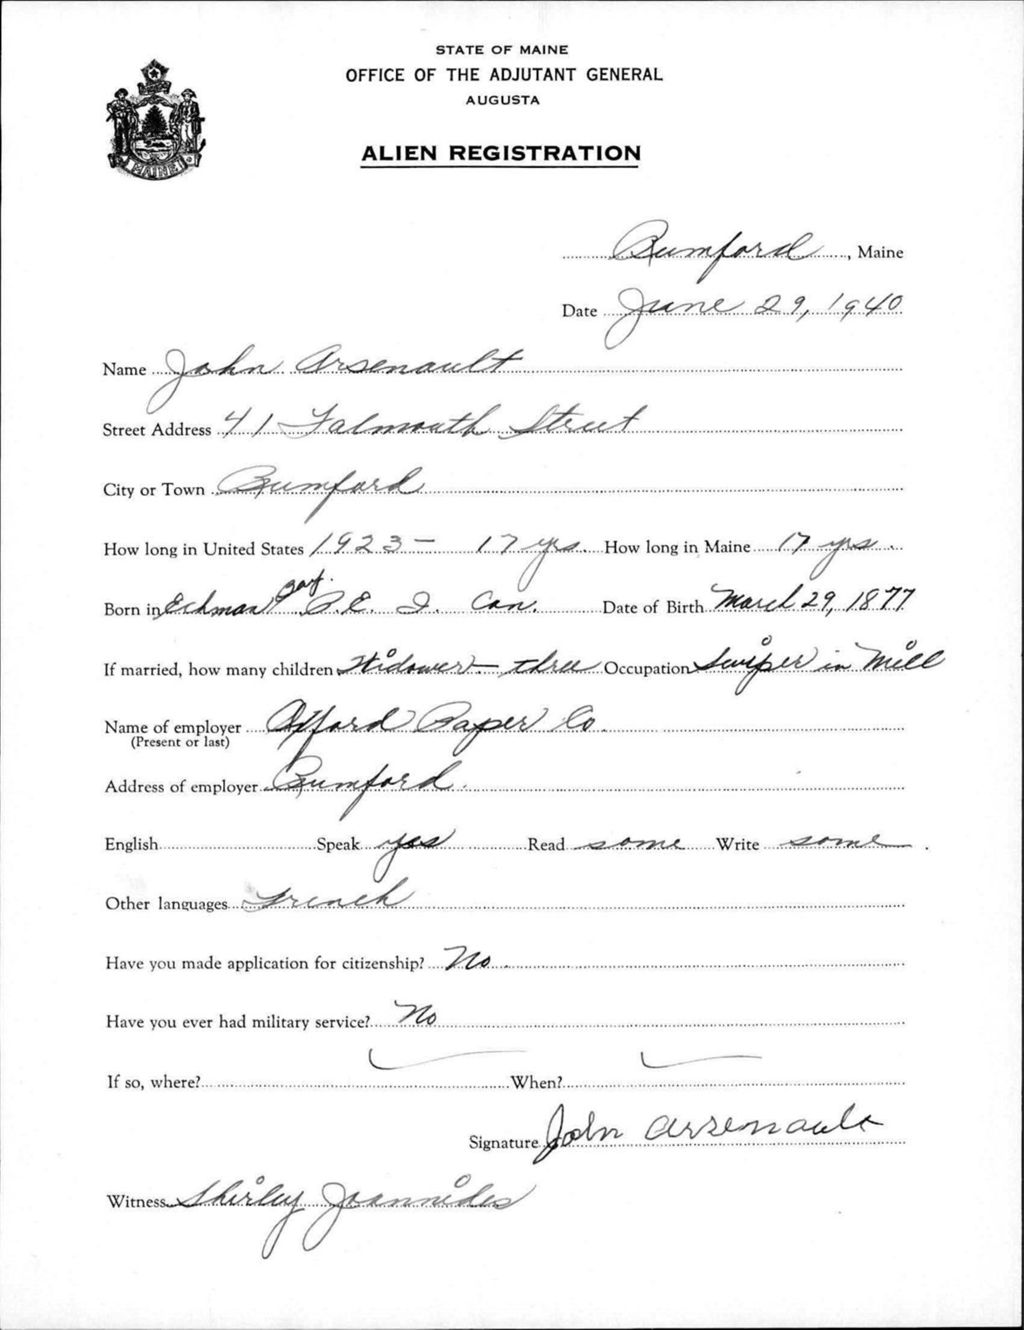 STATE OF MAINE
OFFICE OF THE ADJUTANT GENERAL
AUGUSTA
ALIEN REGISTRATION
MAINE
Rumford, Maine
Date June 29, 1940
Name John Arsenault
Street Address 41 Falmouth Street
City or Town Rumford
How long in United States 1923 – 17 yrs. How long in Maine 17 yrs.
Born in P. E. I. Can. Date of Birth March 29, 1877
If married, how many children Widower – three Occupation Swiper in Mill
Name of employer Oxford Paper Co.
(Present or last)
Address of employer Rumford.
English Speak yes Read some Write some.
Other languages French
Have you made application for citizenship? No.
Have you ever had military service? No
If so, where? When?
Signature John Arsenault
Witness Shirley Joannides